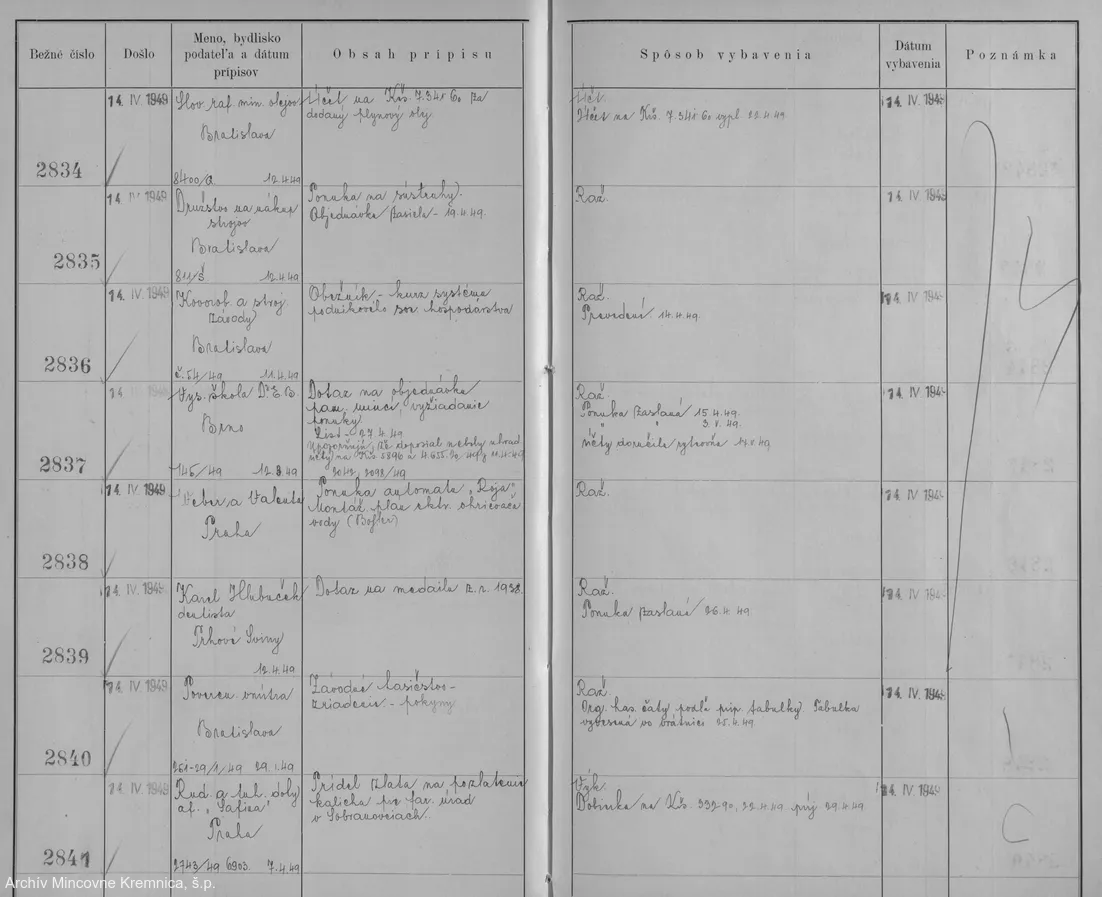 Bežné číslo
Došlo
Meno, bydlisko
podateľa a dátum
prípisov
Obsah prípisu
Spôsob vybavenia
Dátum
vybavenia
Poznámka
2834
14. IV. 1949
Slov. raf. min. olejov
Bratislava
8400/a 12.4.49
Účet na Kčs 7.341·60 za
dodaný plynový olej
Účt.
Účet na Kčs. 7.341·60 vypl. 22.4.49
14. IV. 1949
2835
14. IV. 1949
Družstvo na nákup
strojov
Bratislava
811/Š 12.4.49
Ponuka na sústruhy.
Objednávka zasiela - 19.4.49.
Raž.
14. IV. 1949
2836
14. IV. 1949
Kovorob. a stroj.
závody
Bratislava
č. 54/49 11.4.49
Obežník - kurz systému
podnikového soc. hospodárstva
Raž.
Prevedené 14.4.49.
14. IV. 1949
2837
14
Vys. škola Dr. E. B.
Brno
145/49 12.3.49
Dotaz na objednávku
pam. mincí, vyžiadanie
ponuky
List - 27.4.49
Upozorňujú, že doposial neboly uhrad.
účty na Kčs 5896 a 4.655.20/49 z 11.4.49
2042, 2098/49
Raž.
Ponuka zaslaná 15.4.49.
" " 3.V.49.
účty doručila
14. IV. 1949
2838
14. IV. 1949
Weber a Valenta
Praha
Ponuka automatu "Roja"
Montáž. plán elktr. ohrievača
vody
Raž.
14. IV. 1949
2839
14. IV. 1949
Karel Hlubuček
dentista
Trhové Sviny
12.4.49
Dotaz na medaila z r. 1938.
Raž.
Ponuka zaslaná 26.4.49.
14. IV. 1949
2840
14. IV. 1949
Poveren. vnútra
Bratislava
261-29/1/49 29.1.49
Závodné hasičstvo -
zriadenie - pokyny
Raž.
Org. has. čaty podľa prip. tabulky. Tabulka
vyvesená vo vrátnici 25.4.49
14. IV. 1949
2841
14. IV. 1949
Rud. a tuh. doly
af. "Safina"
Praha
2743/49 6903 7.4.49
Prídel zlata na pozlatenie
kalicha pre far. úrad
v Sobranovciach.
Výk.
Dobierka na Kčs. 332·90, 22.4.49 prij. 29.4.49
14. IV. 1949
Archív Mincovne Kremnica, š.p.